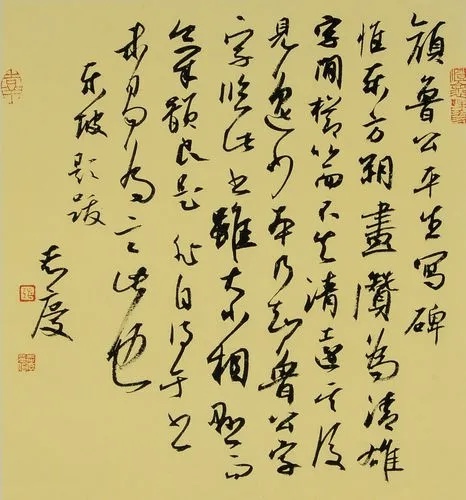 顔魯公平生寫碑
惟东方朔畫讚為清雄
字間櫛比而不失清遠其後
見逸少本乃知魯公字
字臨此书雖大小相懸而
气韻良是非自得于书
未易為言此也
东坡題跋
志慶